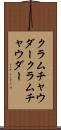 クラムチャウ
ダークラムチ
ャウダー